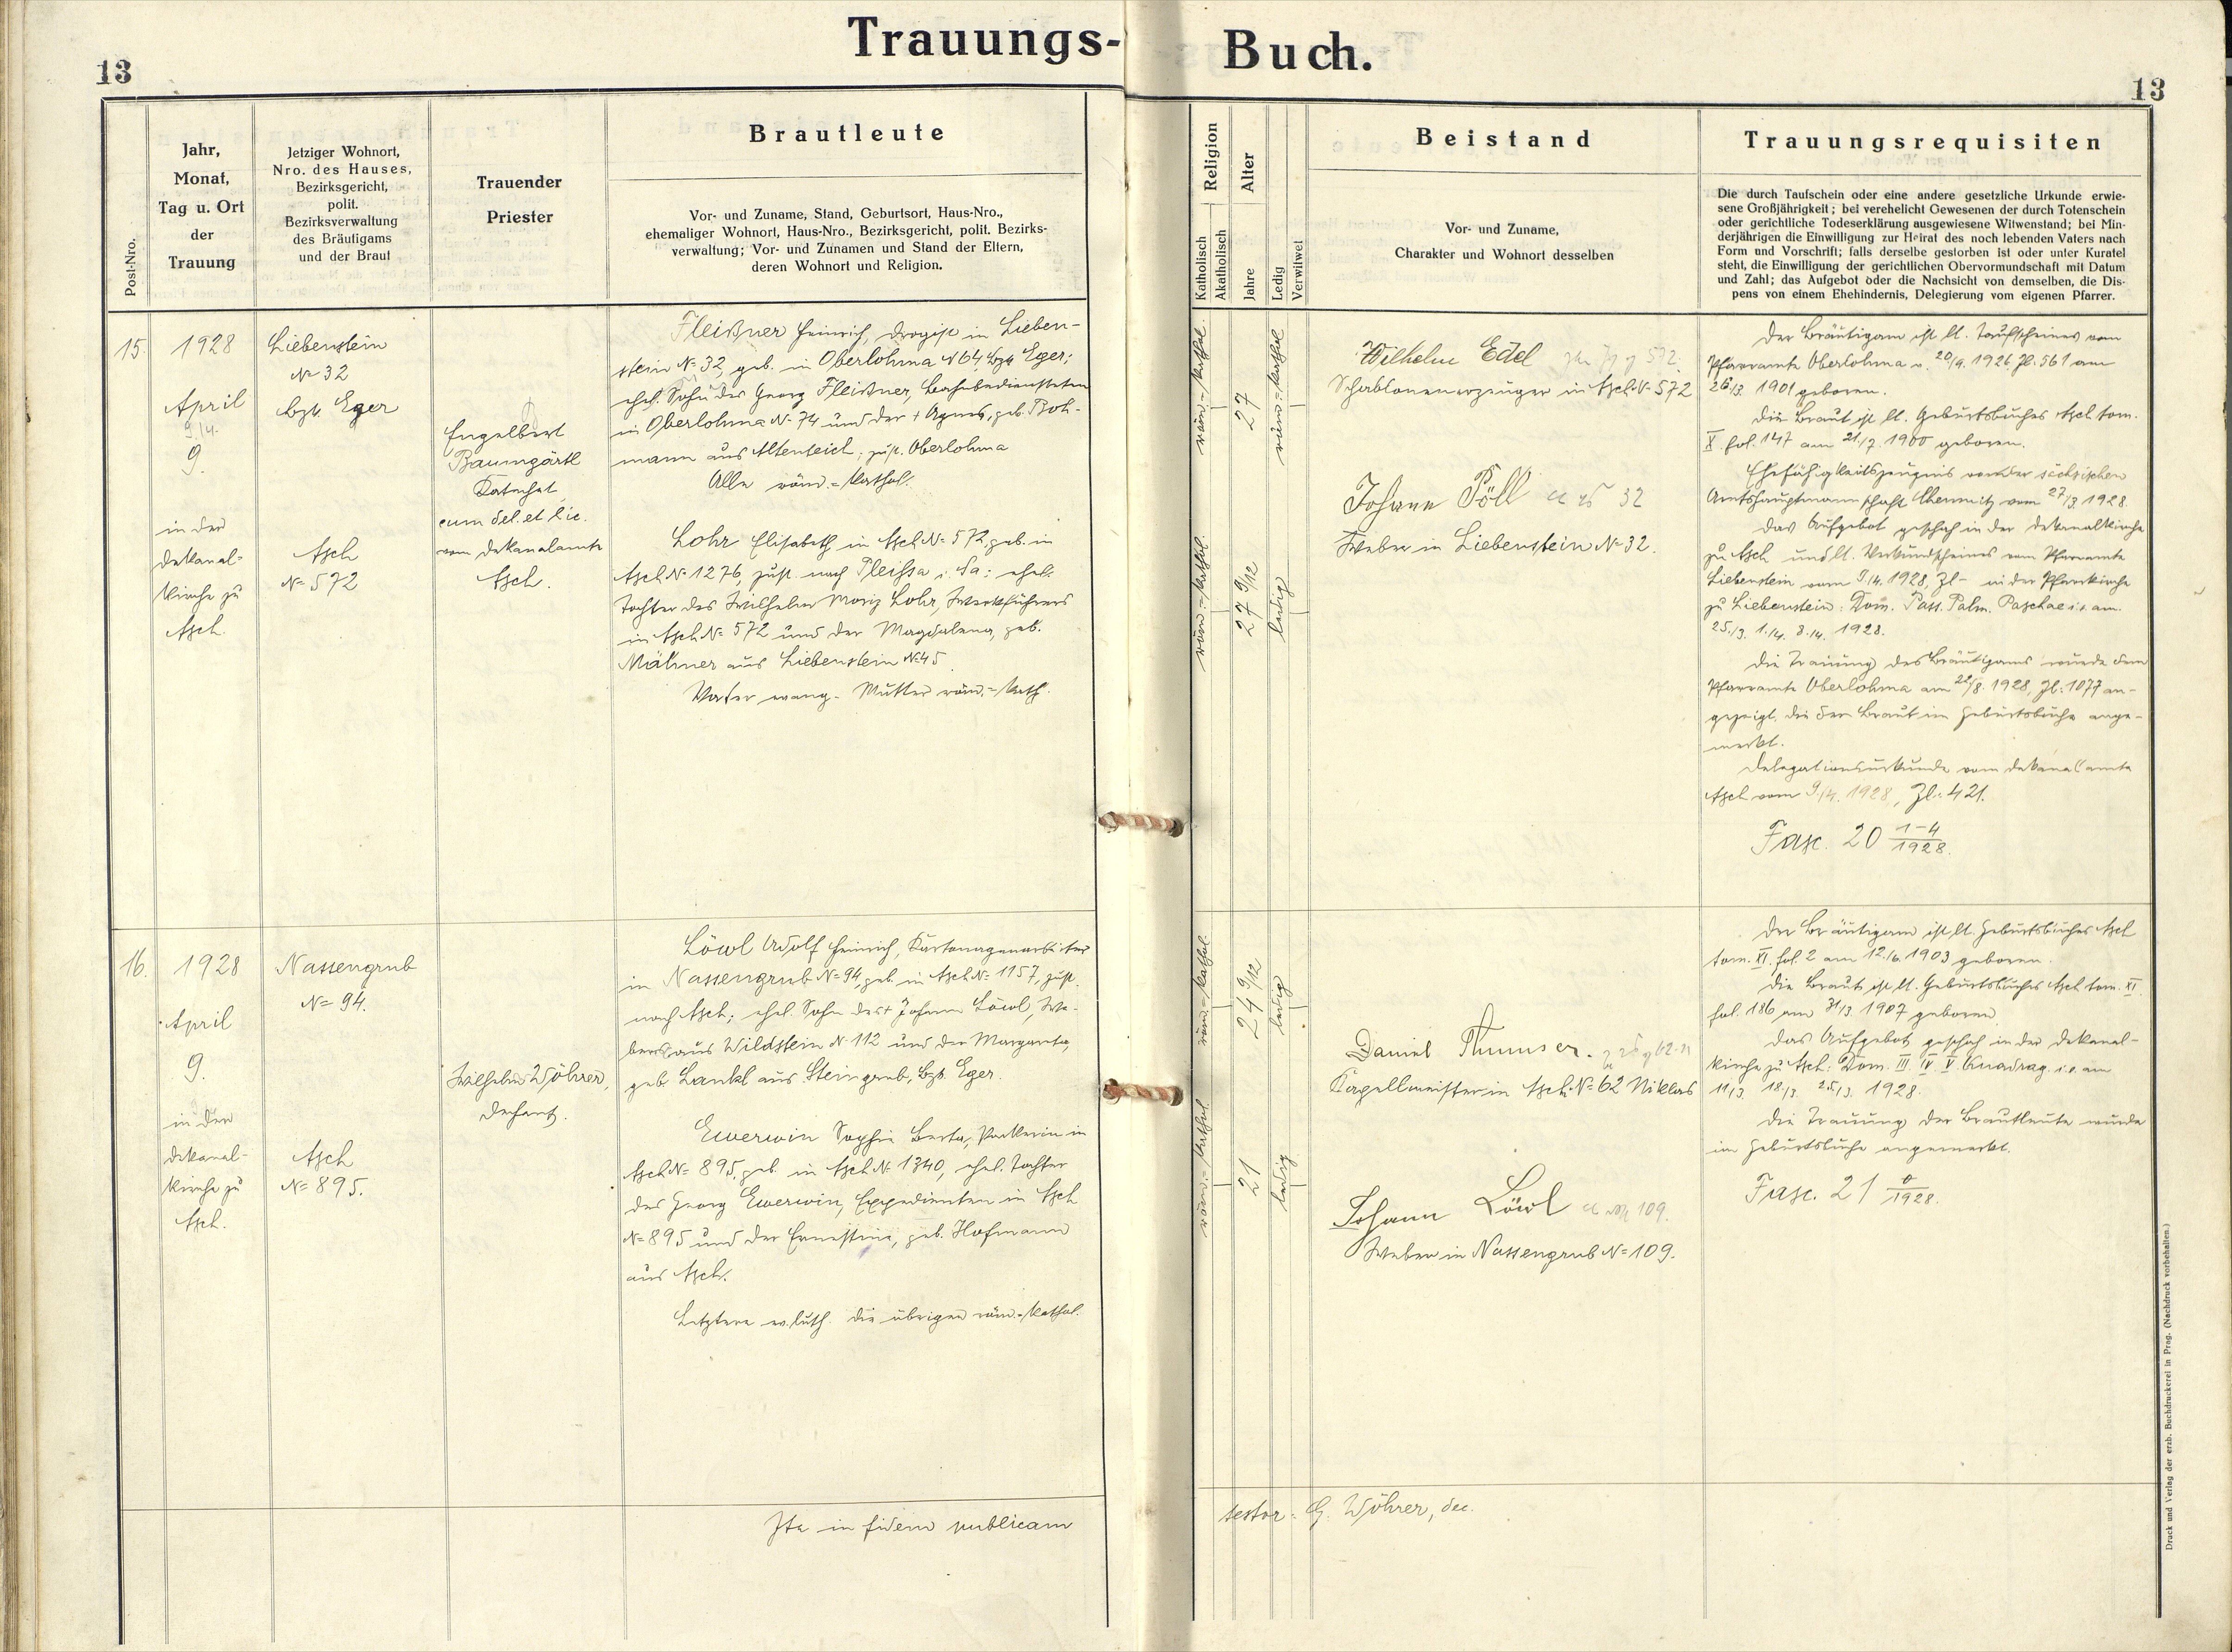 Trauungs-
Buch.
13
13
Post-Nro.
Jahr,
Monat,
Tag u. Ort
der
Trauung
Jetziger Wohnort,
Nro. des Hauses,
Bezirksgericht,
polit.
Bezirksverwaltung
des Bräutigams
und der Braut
Trauender
Priester
Brautleute
Vor- und Zuname, Stand, Geburtsort, Haus-Nro.,
ehemaliger Wohnort, Haus-Nro., Bezirksgericht, polit. Bezirks-
verwaltung; Vor- und Zunamen und Stand der Eltern,
deren Wohnort und Religion.
Religion
Katholisch
Akatholisch
Alter
Jahre
Ledig
Verwitwet
Beistand
Vor- und Zuname,
Charakter und Wohnort desselben
Trauungsrequisiten
Die durch Taufschein oder eine andere gesetzliche Urkunde erwie-
sene Großjährigkeit; bei verehelicht Gewesenen der durch Totenschein
oder gerichtliche Todeserklärung ausgewiesene Witwenstand; bei Min-
derjährigen die Einwilligung zur Heirat des noch lebenden Vaters nach
Form und Vorschrift; falls derselbe gestorben ist oder unter Kuratel
steht, die Einwilligung der gerichtlichen Obervormundschaft mit Datum
und Zahl; das Aufgebot oder die Nachsicht von demselben, die Dis-
pens von einem Ehehindernis, Delegierung vom eigenen Pfarrer.
15.
1928
April
9./4.
9.
in der
Dekanal-
kirche zu
Asch.
Liebenstein
N= 32
Bzk. Eger
Asch
N= 572
Engelbert
Baumgärtl
Katechet
cum del. et lic.
vom Dekanalamte
Asch.
Fleißner Heinrich, Drogist in Lieben-
stein N= 32, geb. in Oberlohma N 64, Bzk. Eger;
ehel. Sohn des Georg Fleißner, Bahnbediensteten
in Oberlohma N= 74 und der + Agnes, geb. Roh-
mann aus Altenteich; zust. Oberlohma
Alle röm.=kathol.
Lohr Elisabeth in Asch N= 572, geb. in
Asch N= 1276, zust. nach Pleißa i. Sa; ehel.
Tochter des Wilhelm Moriz Lohr, Werkführers
in Asch N= 572 und der Magdalena, geb.
Mähner aus Liebenstein N= 45
Vater evang. Mutter röm.=kath.
röm.=kathol.
27
röm.=kathol.
27 9/12
ledig
Wilhelm Edel
Schablonenerzeuger in Asch N= 572
Johann Pöll
Weber in Liebenstein N= 32.
Der Bräutigam ist lt. Taufscheines vom
Pfarramte Oberlohma v. 20/9. 1926, Zl. 561 am
26./3. 1901 geboren.
Die Braut ist lt. Geburtsbuches Asch tom.
X fol. 147 am 21/7. 1900 geboren.
Ehefähigkeitszeugnis von der sächsischen
Amtshauptmannschaft Chemnitz vom 27/3. 1928.
Das Aufgebot geschah in der Dekanalkirche
zu Asch und lt. Verkundscheines vom Pfarramte
Liebenstein vom 9./4. 1928, Zl - in der Pfarrkirche
zu Liebenstein: Dom. Pass. Palm. Paschae i. e. am
25./3. 1./4. 8./4. 1928.
Die Trauung des Bräutigams wurde dem
Pfarramte Oberlohma am 22/8. 1928, Zl: 1077 an-
gezeigt, die der Braut im Geburtsbuche ange-
merkt.
Delegationsurkunde vom Dekanalamte
Asch vom 9./4. 1928, Zl: 421.
Fasc. 20 1-4/1928.
16.
1928
April
9.
in der
Dekanal-
kirche zu
Asch.
Nassengrub
N= 94.
Asch
N= 895.
Wilhelm Wöhrer,
Dechant.
Löwl Adolf Heinrich, Kartonagenarbeiter
in Nassengrub N= 94, geb. in Asch N= 1157, zust.
nach Asch; ehel. Sohn des + Johann Löwl, We-
bers aus Wildstein N= 112 und der Margareta,
geb. Lankl aus Steingrub, Bzk. Eger.
Ewerwin Sophie Berta, Packerin in
Asch N= 895, geb. in Asch N= 1340, ehel. Tochter
des Georg Ewerwin, Expedienten in Asch
N= 895 und der Ernestine, geb. Hofmann
aus Asch.
Letztere ev. luth. die übrigen röm.=kathol.
röm.=kathol.
24 9/12
ledig
röm.=kathol.
21
ledig
Daniel Thumser.
Kapellmeister in Asch N= 62 Niklas
Johann Löwl
Weber in Nassengrub N= 109.
Der Bräutigam ist lt. Geburtsbuches Asch
tom. XI. fol. 2 am 12./6. 1903 geboren.
Die Braut ist lt. Geburtsbuches Asch tom. XI
fol. 186 am 31/3. 1907 geboren
Das Aufgebot geschah in der Dekanal-
kirche zu Asch: Dom. III IV V Quadrag. i. e. am
11/3. 18./3. 25./3. 1928.
Die Trauung der Brautleute wurde
im Geburtsbuche angemerkt.
Fasc. 21 0/1928.
Ita in fidem publicam
testor: G. Wöhrer, dec.
Druck und Verlag der erzb. Buchdruckerei in Prag. (Nachdruck vorbehalten.)